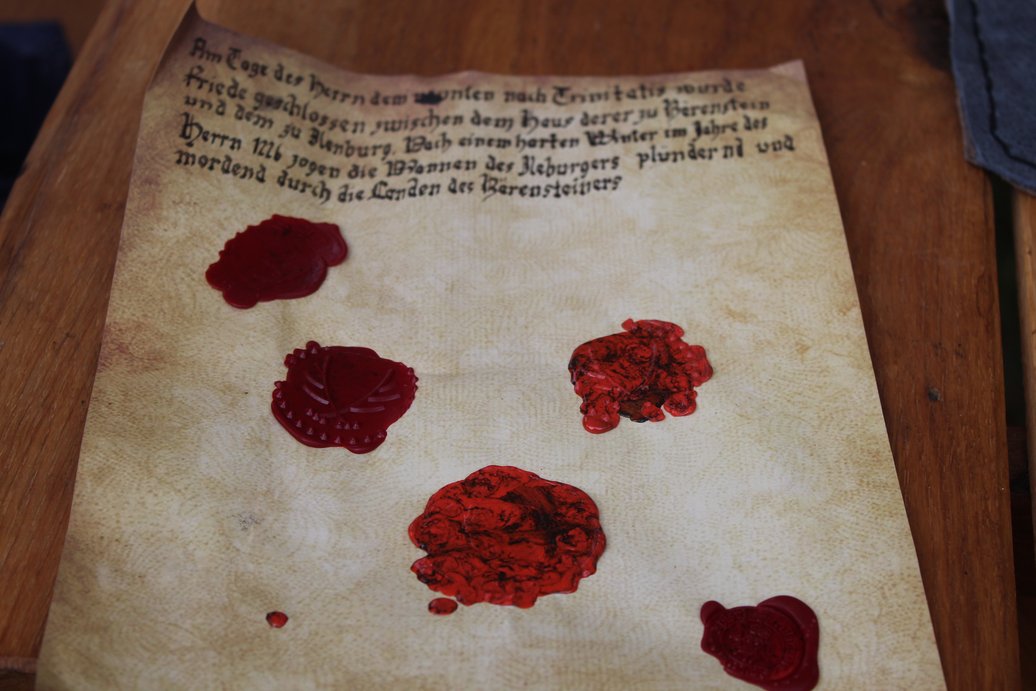 Am Tage des Herrn dem nach Trinitatis wurde
friede geschlossen zwischen dem Haus derer zu Bärenstein
und dem zu Ilenburg. Nach einem harten Winter im Jahre des
Herrn 1226 zogen die Mannen des Ileburgers plündernd und
mordend durch die Landen des Bärensteiners